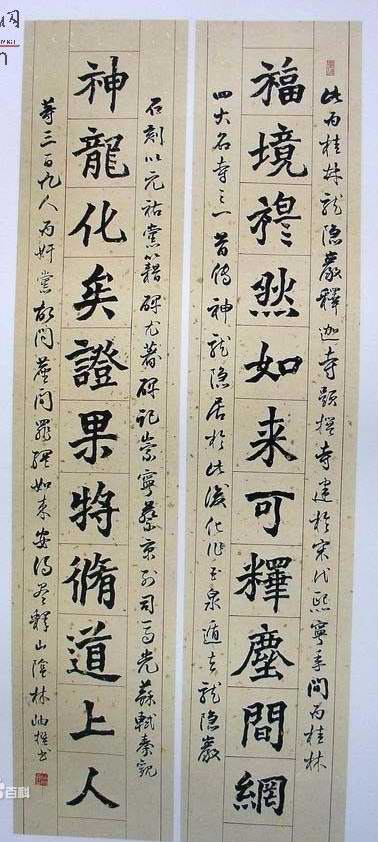 此为桂林龍隐巖釋迦寺题撰寺建於宋代熙寧年间为桂林
福境穆然如来可釋塵間網
四大名寺之一昔傳神龍隐居於此後化作玉泉遁去龍隐巖
石刻以元祐黨籍碑尤著碑記崇寧蔡京列司馬光蘇軾秦觀
神龍化矣證果將脩道上人
等三百九人为奸黨欲問塵间羅網如来安得尽釋山陰林岫撰书
百科